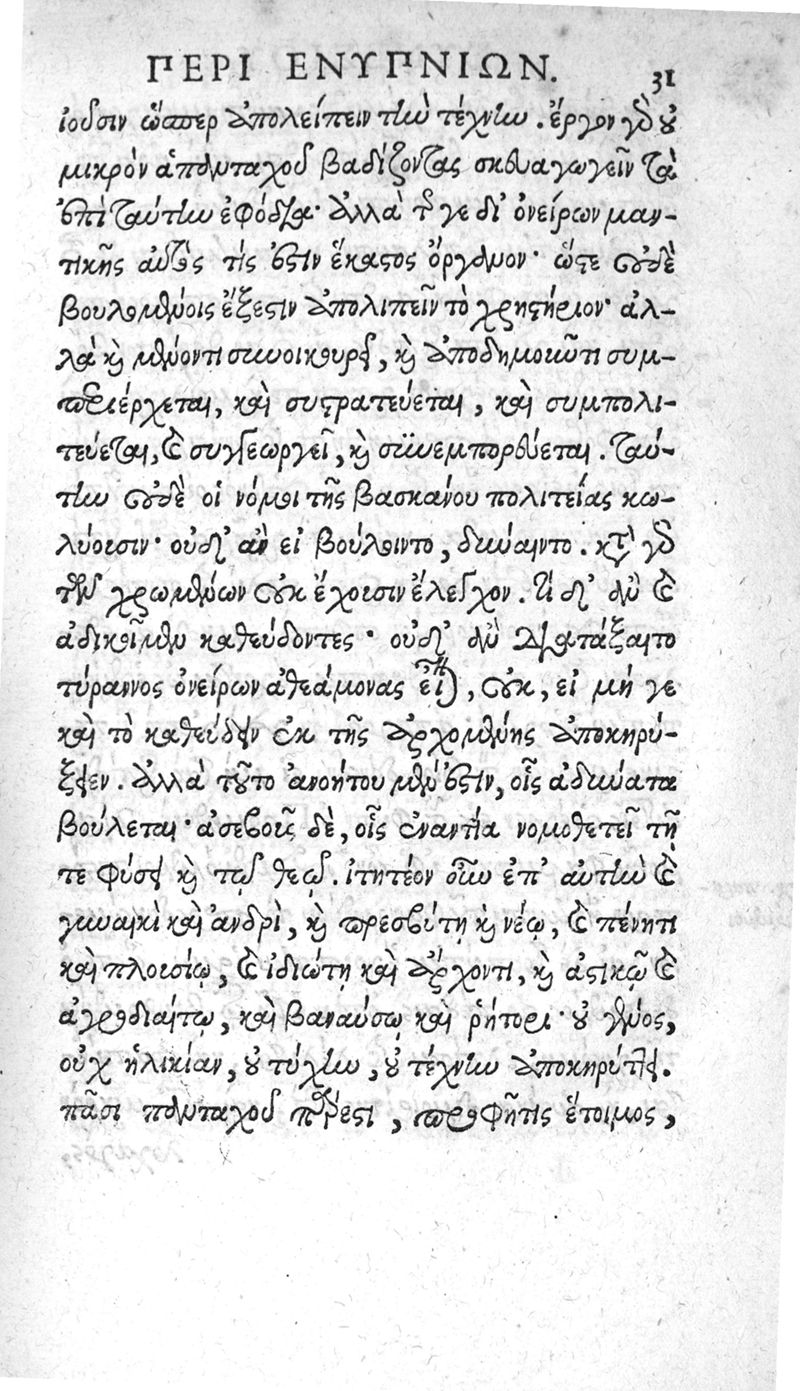 ΠΕΡΙ ΕΝΥΠΝΙΩΝ. 31
ἰοῦσιν ὥσπερ ἀπολείπειν τὴν τέχνην. ἔργον γὰρ οὐ
μικρὸν ἁπανταχοῦ βαδίζοντας σκευαγωγεῖν τὰ
ἐπὶ ταύτην ἐφόδια· ἀλλὰ τῆς γε δι' ὀνείρων μαν-
τικῆς αὐτός τίς ἐστιν ἕκαστος ὄργανον· ὥστε οὐδὲ
βουλομένοις ἔξεστιν ἀπολιπεῖν τὸ χρηστήριον· ἀλ-
λὰ καὶ μένοντι συνοικουρεῖ, καὶ ἀποδημοῦντι συμ-
περιέρχεται, καὶ συστρατεύεται, καὶ συμπολι-
τεύεται, καὶ συγγεωργεῖ, καὶ συνεμπορεύεται. ταύ-
την οὐδὲ οἱ νόμοι τῆς βασκάνου πολιτείας κω-
λύουσιν· οὐδ' ἂν εἰ βούλοιντο, δύναιντο. κατὰ γὰρ
τῶν χρωμένων οὐκ ἔχουσιν ἔλεγχον. τί δ' ἂν καὶ
ἀδικοῖμεν καθεύδοντες· οὐδ' ἂν διατάξαιτο
τύραννος ὀνείρων ἀθεάμονας εἶναι, οὐκ, εἰ μή γε
καὶ τὸ καθεύδειν ἐκ τῆς ἀρχομένης ἀποκηρύ-
ξειεν. ἀλλὰ τοῦτο ἀνοήτου μέν ἐστιν, οἷς ἀδύνατα
βούλεται· ἀσεβοῦς δὲ, οἷς ἐναντία νομοθετεῖ τῇ
τε φύσει καὶ τῷ θεῷ. ἰτητέον οὖν ἐπ' αὐτὴν καὶ
γυναικὶ καὶ ἀνδρὶ, καὶ πρεσβύτῃ καὶ νέῳ, καὶ πένητι
καὶ πλουσίῳ, καὶ ἰδιώτῃ καὶ ἄρχοντι, καὶ ἀστικῷ καὶ
ἀγροδιαίτῳ, καὶ βαναύσῳ καὶ ῥήτορι· οὐ γένος,
οὐχ ἡλικίαν, οὐ τύχην, οὐ τέχνην ἀποκηρύττει.
πᾶσι πανταχοῦ πάρεστι, προφῆτις ἕτοιμος,